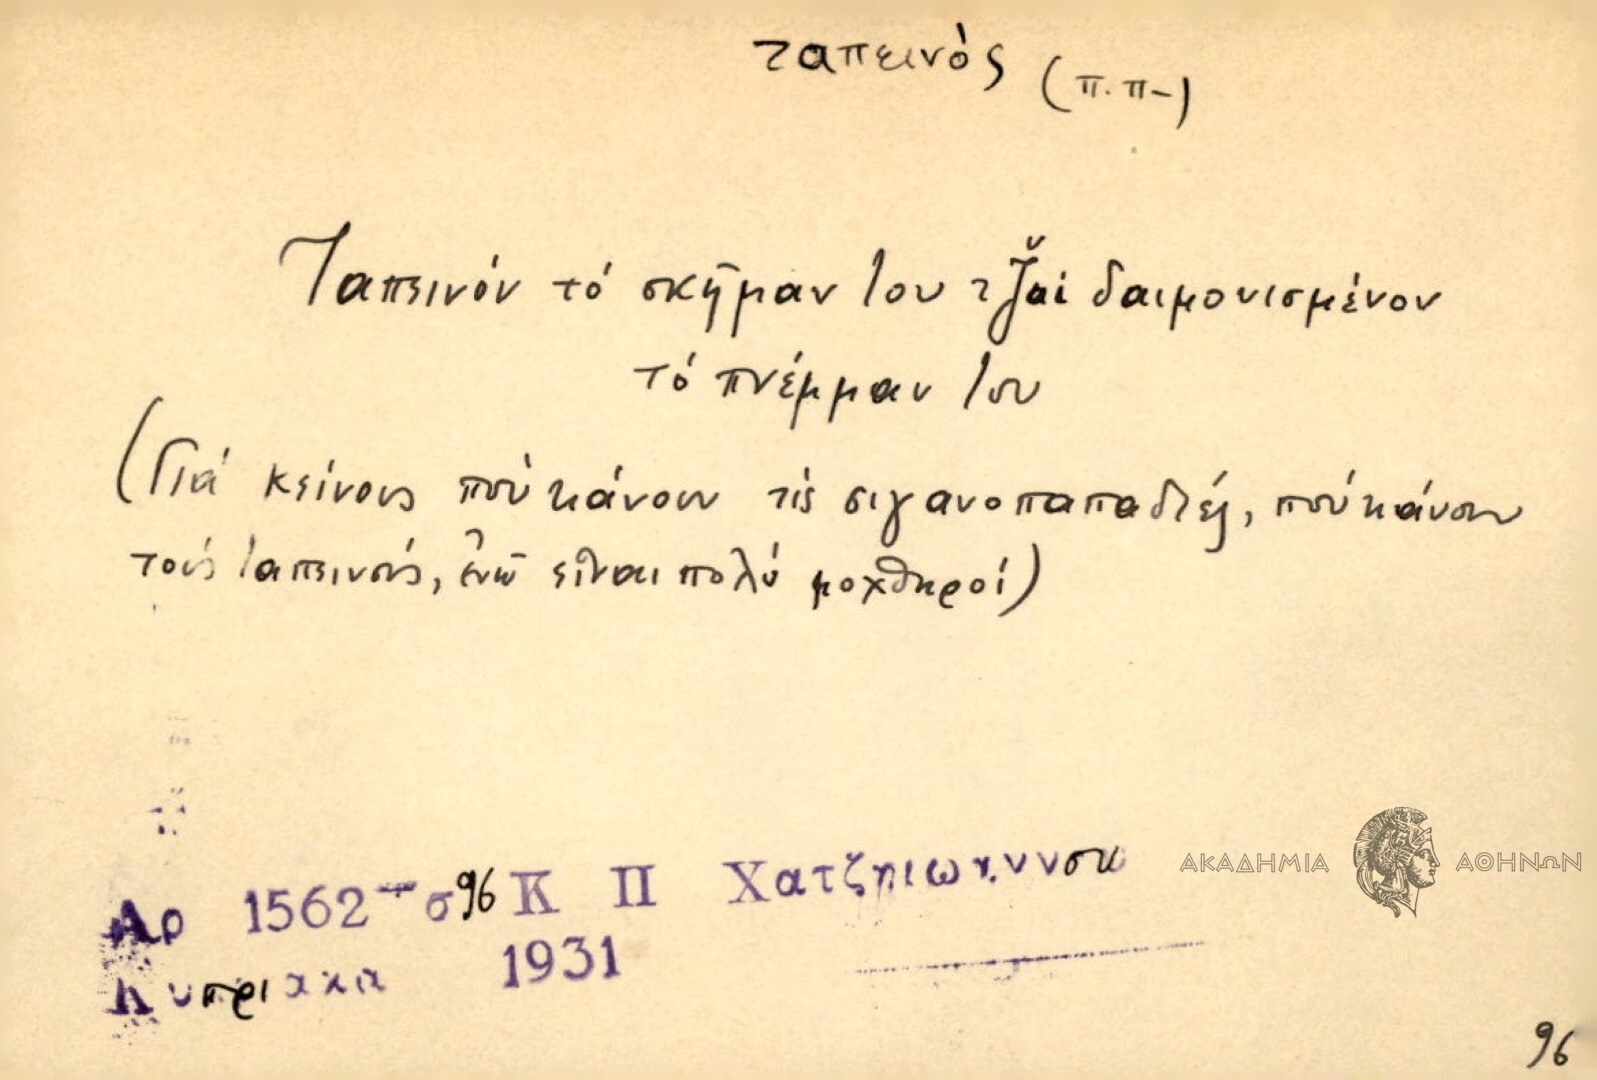 ταπεινός (π.π-)
Ταπεινόν τό σκῆμαν του τζ̌αί δαιμονισμένον
τό πνέμμαν του
(Γιά κείνους πού κάνουν τίς σιγανοπαπαδιές, πού κάνουν
τούς ταπεινούς, ἐνῶ εἶναι πολύ μοχθηροί)
Αρ 1562 - σ 96 Κ Π Χατζηιωαννου
Κυπριακα 1931
ΑΚΑΔΗΜΙΑ ΑΘΗΝΩΝ
96